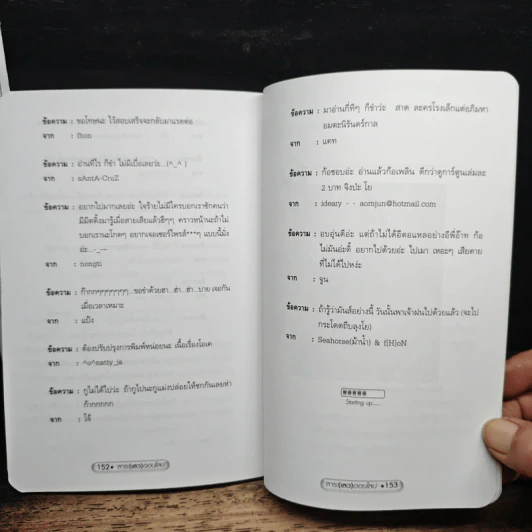 ข้อความ : ขอโทษนะ ไว้สอบเสร็จจะกลับมาแรดต่อ
จาก : fhon
ข้อความ : อ่านทีไร ก็ขำ ไม่มีเบื่อเลยว่ะ...(^_^ )
จาก : sAntA-CruZ
ข้อความ : อยากไปมากเลยอ่ะ ใจร้ายไม่มีใครบอกเราซักคนว่า
มีมีตติ้งมารู้เมื่อสายเสียแล้วฮึๆๆ คราวหน้านะถ้าไม่
บอกเรานะโกดๆ อยากเจอเซอร์ไพรส์***ๆ แบบนี้มั่ง
อ่ะ...-_--
จาก : nongti
ข้อความ : ก๊ากกๆๆๆๆๆๆๆ...ขอขำด้วยฮา...ฮ่า...ฮ่า...บาย เจอกัน
เมื่อเวลาเหมาะ
จาก : แป้ง
ข้อความ : ต้องปรับปรุงการพิมพ์หน่อยนะ เนื้อเรื่องโอเค
จาก : ^o^natty_ja
ข้อความ : กูไม่ได้ไปว่ะ ถ้ากูไปนะกูแม่งปล่อยให้ชกกันเลยห่า
ก๊ากกกกก
จาก : โจ้
152
ข้อความ : มาอ่านกี่ทีๆ ก็ขำว่ะ สาด ละครโรงเล็กแต่อภิมหา
อมตะนิรันดร์กาล
จาก : แคท
ข้อความ : ก้อชอบอ่ะ อ่านแล้วก้อเพลิน ดีกว่าดูการ์ตูนเล่มละ
2 บาท จิงปะ โย
จาก : ideary - - aomjun@hotmail.com
ข้อความ : อบอุ่นดีอ่ะ แต่ถ้าไม่ได้อีตอแหลอย่างอีพี่อ๊าท ก้อ
ไม่มันอ่ะดิ้ อยากไปด้วยอ่ะ ไปเมา เหอะๆ เสียดาย
ที่ไม่ได้ไปหง่ะ
จาก : จูน
ข้อความ : ถ้ารู้ว่ามันส์อย่างนี้ วันนั้นพาเจ้าฝนไปด้วยแล้ว (จะไป
กระโดดถีบลุงโย)
จาก : Seahorse(ม้าน้ำ) & f[H]oN
Starting up.....
153